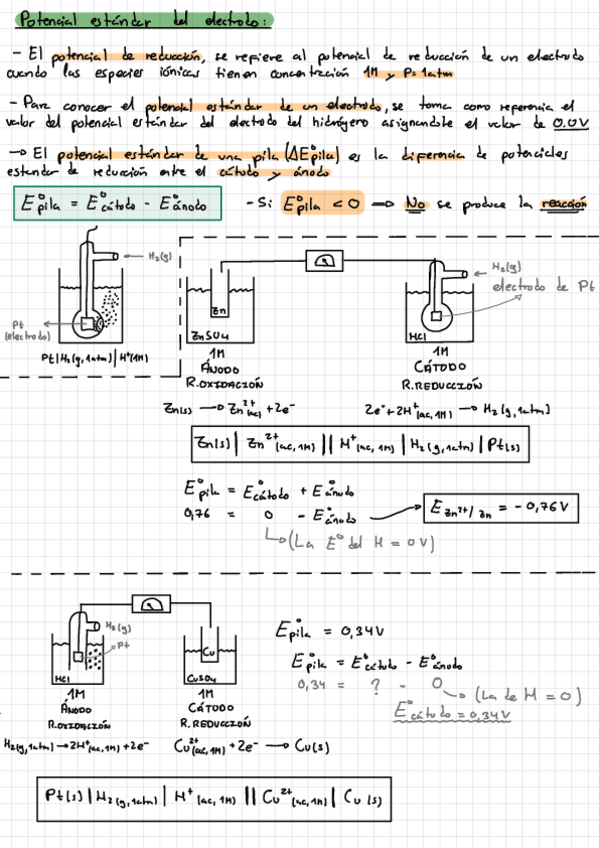 Potencial estándar del electrodo:
- El potencial de reducción, se refiere al potencial de reducción de un electrodo
cuando las especies iónicas tienen concentración 1M y P=1atm
- Para conocer el potencial estándar de un electrodo, se toma como referencia el
valor del potencial estándar del electrodo del hidrógeno asignandole el valor de 0.0V
→ El potencial estándar de una pila (ΔE°pila) es la diferencia de potenciales
estandar de reducción entre el cátodo y ánodo
E°pila = E°cátodo - E°ánodo - Si E°pila < 0 → No se produce la reacción
H₂(g)
Pt
(electrodo)
Pt|H₂(g,1atm)|H⁺(1M)
Zn
ZnSO₄
1M
ÁNODO
R.OXIDACIÓN
H₂(g)
electrodo de Pt
HCl
1M
CÁTODO
R.REDUCCIÓN
Zn(s) → Zn²⁺(ac) + 2e⁻ 2e⁻ + 2H⁺(ac,1M) → H₂(g,1atm)
Zn(s) | Zn²⁺(ac,1M) || H⁺(ac,1M) | H₂(g,1atm) | Pt(s)
E°pila = E°cátodo + E°ánodo
0,76 = 0 - E°ánodo → E Zn²⁺/Zn = -0,76V
(La E° del H = 0V)
H₂(g)
Pt
HCl
1M
ÁNODO
R.OXIDACIÓN
Cu
CuSO₄
1M
CÁTODO
R.REDUCCIÓN
H₂(g,1atm) → 2H⁺(ac,1M) + 2e⁻ Cu²⁺(ac,1M) + 2e⁻ → Cu(s)
E°pila = 0,34V
E°pila = E°cátodo - E°ánodo
0,34 = ? - 0 (La de H = 0)
E°cátodo = 0,34V
Pt(s) | H₂(g,1atm) | H⁺(ac,1M) || Cu²⁺(ac,1M) | Cu(s)